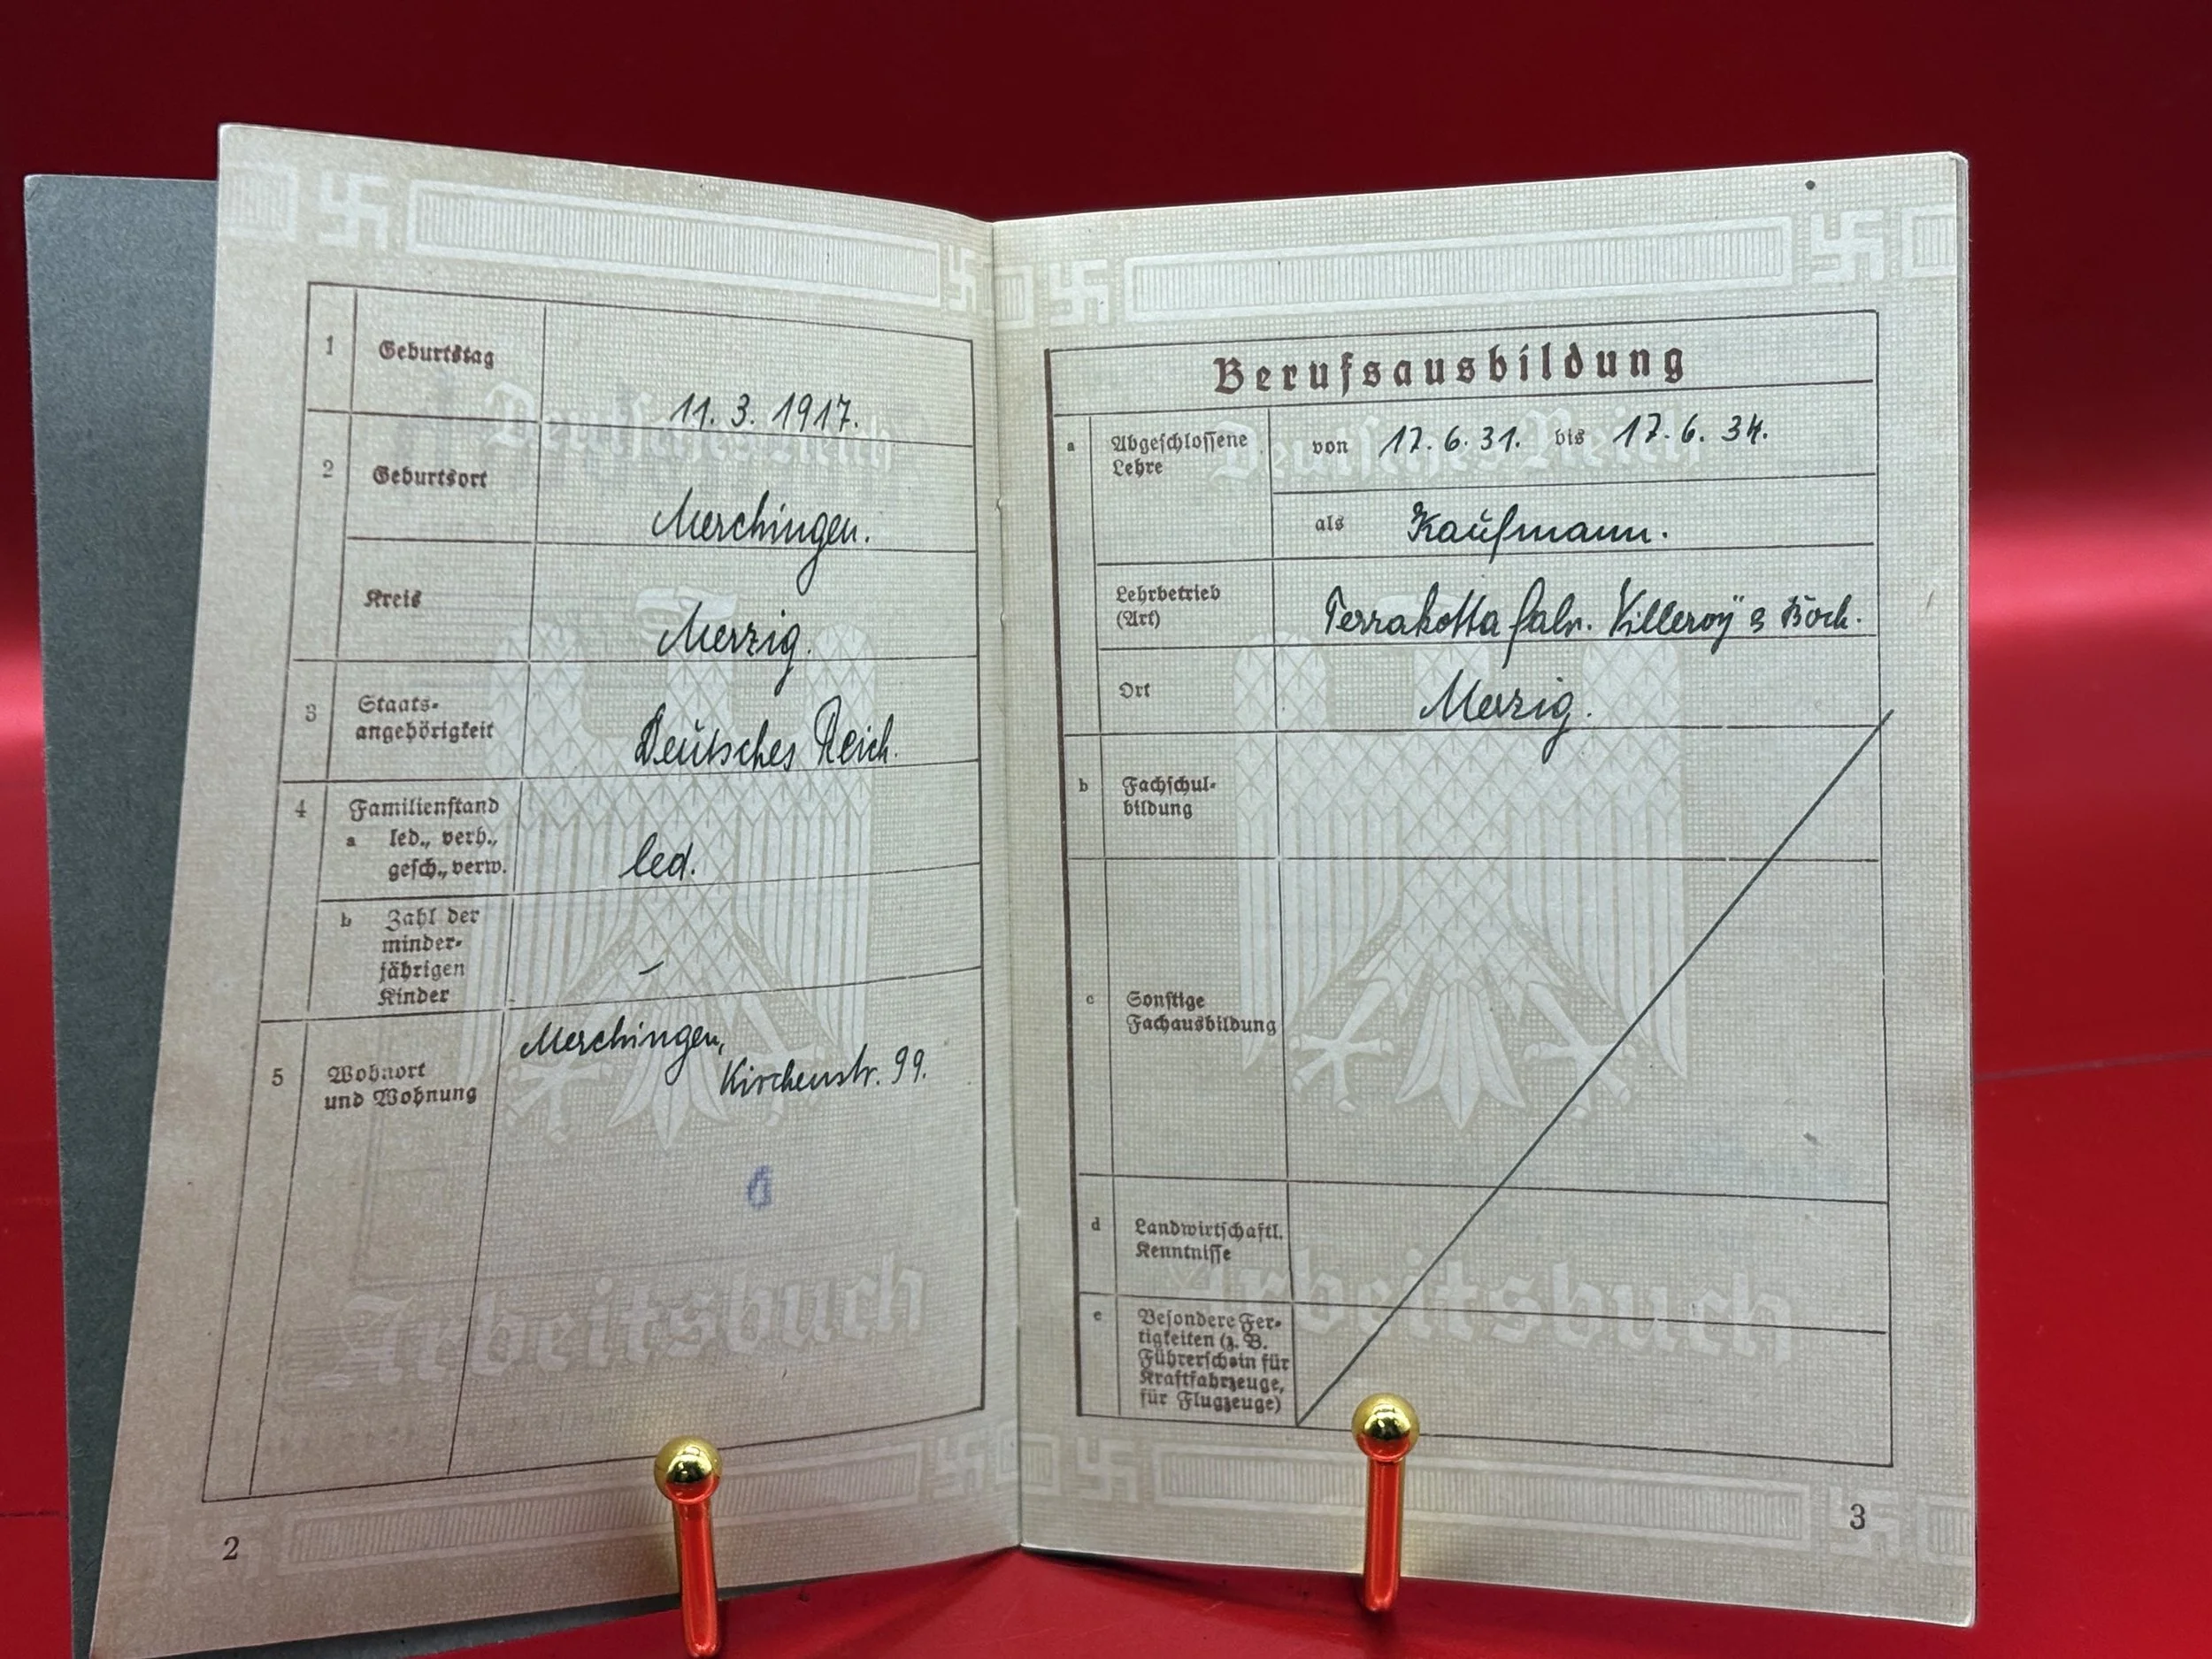 1 Geburtstag 11. 3. 1917.
2 Geburtsort Merchingen.
Kreis Merzig.
3 Staats-
angehörigkeit Deutsches Reich.
4 Familienstand
a led., verh.,
gesch., verw. led.
b Zahl der
minder-
jährigen
Kinder –
5 Wohnort
und Wohnung Merchingen,
Kirchenstr. 99.
Deutsches Reich
Arbeitsbuch
2
Berufsausbildung
a Abgeschlossene
Lehre von 17. 6. 31. bis 17. 6. 34.
als Kaufmann.
Lehrbetrieb
(Art) Terrakotta fabr. Villeroy & Boch.
Ort Merzig.
b Fachschul-
bildung
c Sonstige
Fachausbildung
d Landwirtschaftl.
Kenntnisse
e Besondere Fer-
tigkeiten (z. B.
Führerschein für
Kraftfahrzeuge,
für Flugzeuge)
Deutsches Reich
Arbeitsbuch
3